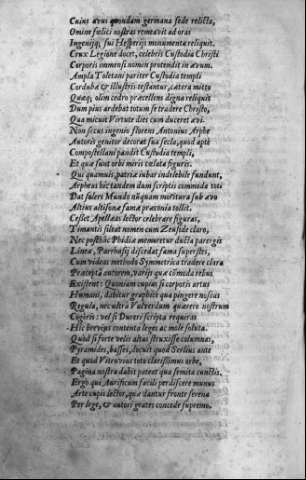 Cuius avus quondam germana sede relicta,
Omine foelici nostras remeavit ad oras
Ingenijq; sui Hesperijs monumenta reliquit.
Crux Legione docet, celebris Custodia Christi
Corporis immensi nomen protendit in aevum.
Ampla Toletani pariter Custodia templi
Corduba & illustris testantur, caetera mitto
Quaeq; olim cedro praecellens digna reliquit
Dum pius ardebat totum se tradere Christo,
Qua micuit Virtute dies cum duceret aevi.
Non secus ingenio florens Antonius Arphe
Autoris genitor decorat sua secla, quod apte
Compostellani pandit Custodia templi,
Et quae sunt orbi miris caelata figuris.
Qui quamuis patriae iubar indelebile fundunt,
Arpheus hic tandem dum scriptis commoda toti
Dat solers Mundo nunquam moritura sub aevo
Altius altisonae fama praeconia tollit.
Cesset Apelleas lector celebrare figuras,
Timantis sileat nomen cum Zeuside claro,
Nec posthac Phidiae memoretur ducta per orgis
Linea, Parrhasij discedat fama superstes,
Cum videas methodo Symmetrica tradere clara
Praecepta autorem, varijs quae commoda rebus
Existent: Quoniam cupias si corporis artus
Humani, dabitur graphice qua pingere possias
Regula, nec ultra Valverdum quaeres nostrum
Cogeris: vel si Dureri scripta requiras
Hic breviter contenta leges ac mole soluta.
Quod si forte velis altas struxisse columnas,
Pyramides, basses, docuit quod Serlius ante
Et quod Vitruvius toto clarissimus orbe,
Pagina nostra dabit pateat qua semita cunctis.
Ergo qui Aurificum facili perdiscere munus
Arte cupis lector, quae dantur fronte serena
Perlege, & autori grates concede supremo.